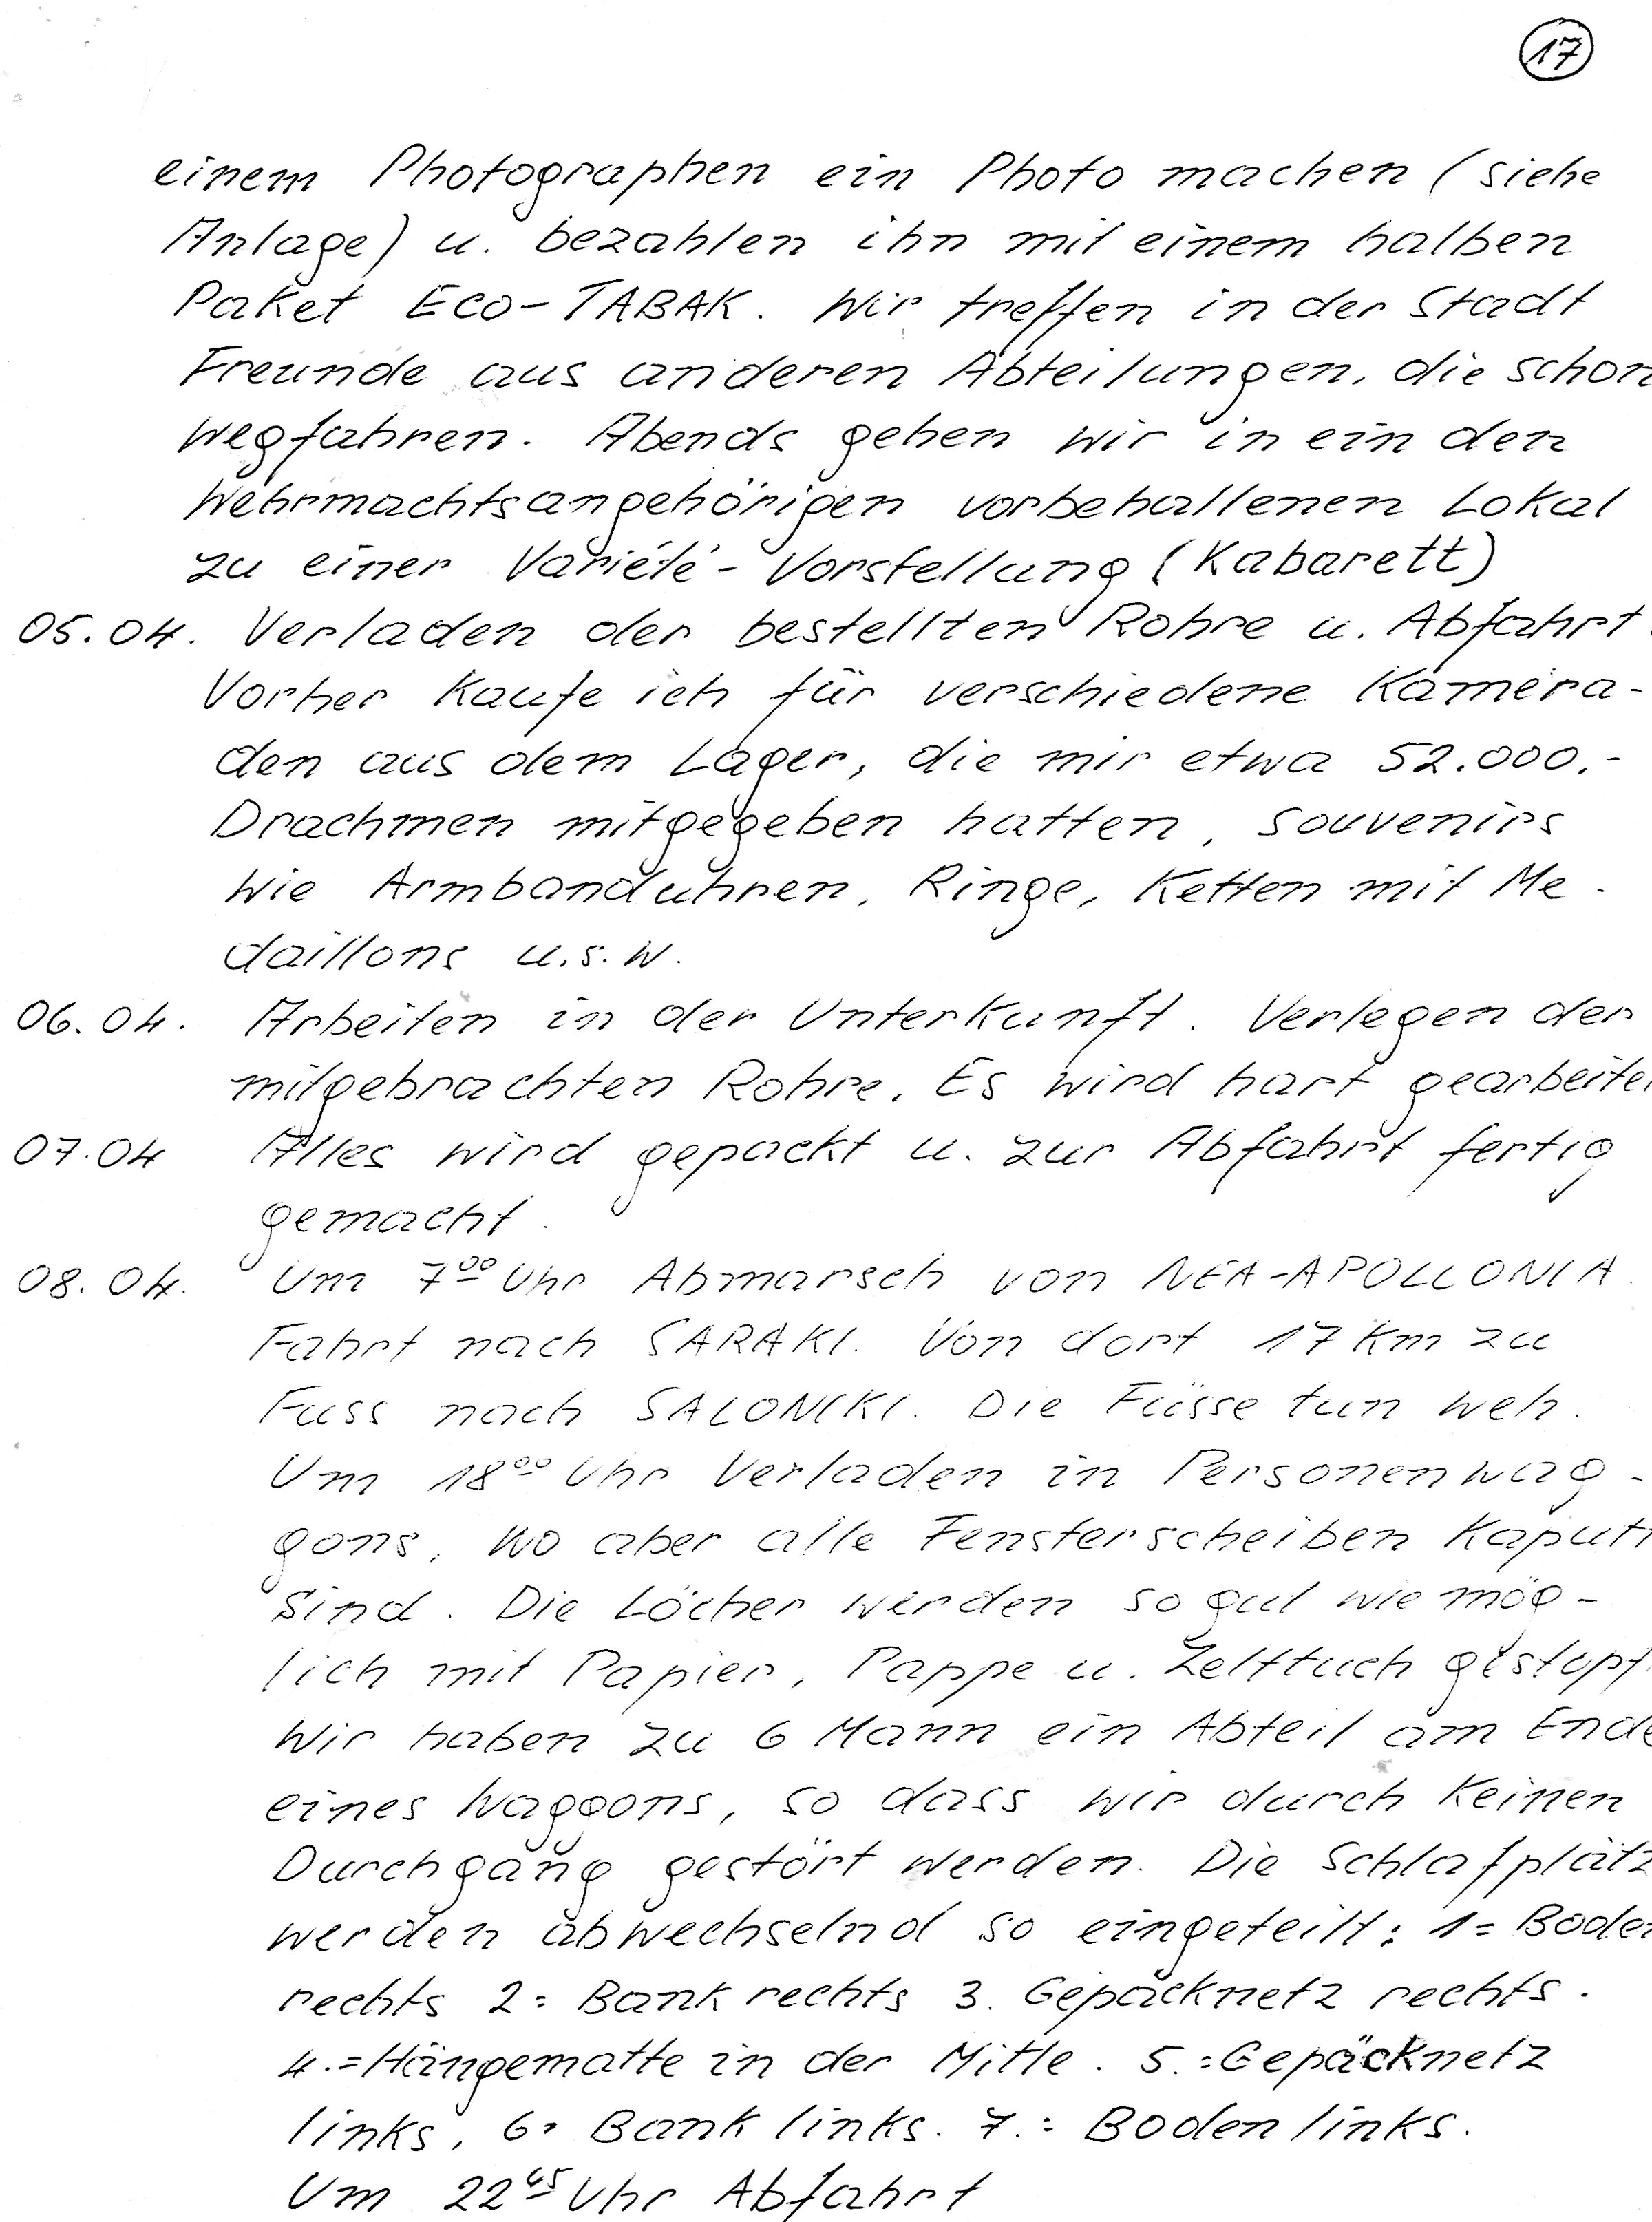 17
einem Photographen ein Photo machen (siehe
Anlage) u. bezahlen ihn mit einem halben
Paket ECO-TABAK. Wir treffen in der Stadt
Freunde aus anderen Abteilungen, die schon
wegfahren. Abends gehen wir in ein den
Wehrmachtsangehörigen vorbehaltenen Lokal
zu einer Variété-Vorstellung (Kabarett)
05.04. Verladen der bestellten Rohre u. Abfahrt.
Vorher kaufe ich für verschiedene Kamera-
den aus dem Lager, die mir etwa 52.000.-
Drachmen mitgegeben hatten, souvenirs
wie Armbanduhren, Ringe, Ketten mit Me-
daillons u.s.w.
06.04. Arbeiten in der Unterkunft. Verlegen der
mitgebrachten Rohre. Es wird hart gearbeitet
07.04 Alles wird gepackt u. zur Abfahrt fertig
gemacht.
08.04. Um 7⁰⁰ Uhr Abmarsch von NEA-APOLLONIA.
Fahrt nach SARAKI. Von dort 17 Km zu
Fuss nach SALONIKI. Die Füsse tun weh.
Um 18⁰⁰ Uhr Verladen in Personenwag-
gons, wo aber alle Fensterscheiben kaputt
sind. Die Löcher werden so gut wie mög-
lich mit Papier, Pappe u. Zelttuch gestopft
Wir haben zu 6 Mann ein Abteil am Ende
eines Waggons, so dass wir durch keinen
Durchgang gestört werden. Die Schlafplätz
werden abwechselnd so eingeteilt: 1= Boden
rechts 2= Bank rechts 3. Gepäcknetz rechts.
4.=Hängematte in der Mitte. 5.=Gepäcknetz
links, 6= Bank links. 7.= Boden links.
Um 22⁴⁵ Uhr Abfahrt